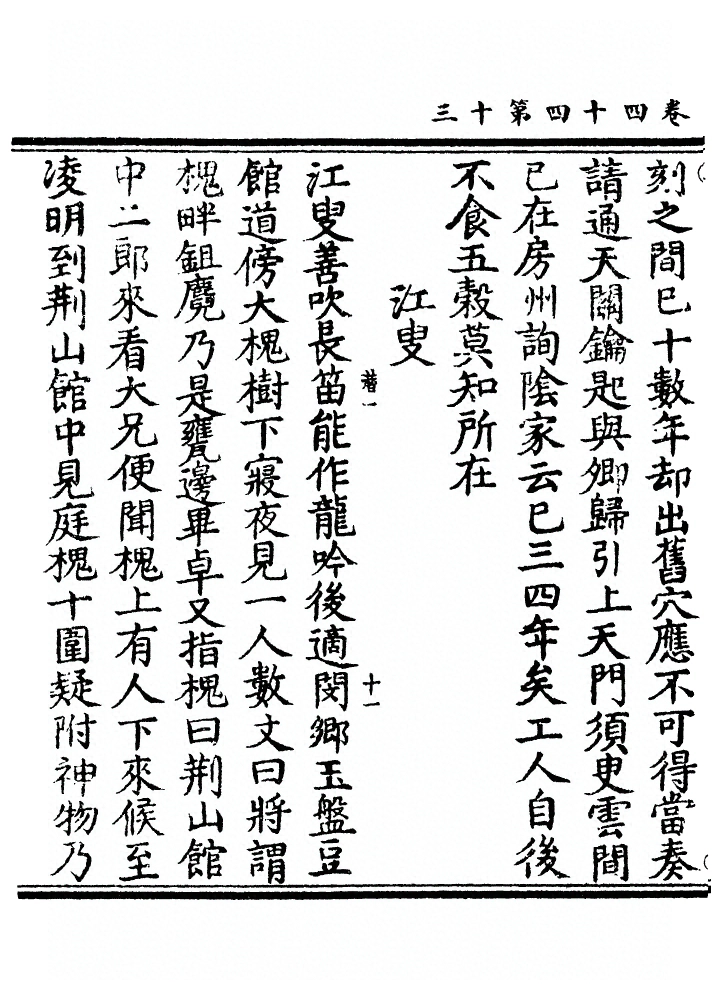 卷四十四第十三
刻之間已十數年却出舊穴應不可得當奏
請通天關鑰匙與卿歸引上天門須臾雲間
已在房州詢陰家云已三四年矣工人自後
不食五穀莫知所在
江叟
江叟善吹長笛能作龍吟後適閔鄉玉盤豆
館道傍大槐樹下寢夜見一人數丈曰將謂
槐畔鉏麑乃是甕邊畢卓又指槐曰荆山館
中二郎來看大兄便聞槐上有人下來候至
凌明到荆山館中見庭槐十圍疑附神物乃